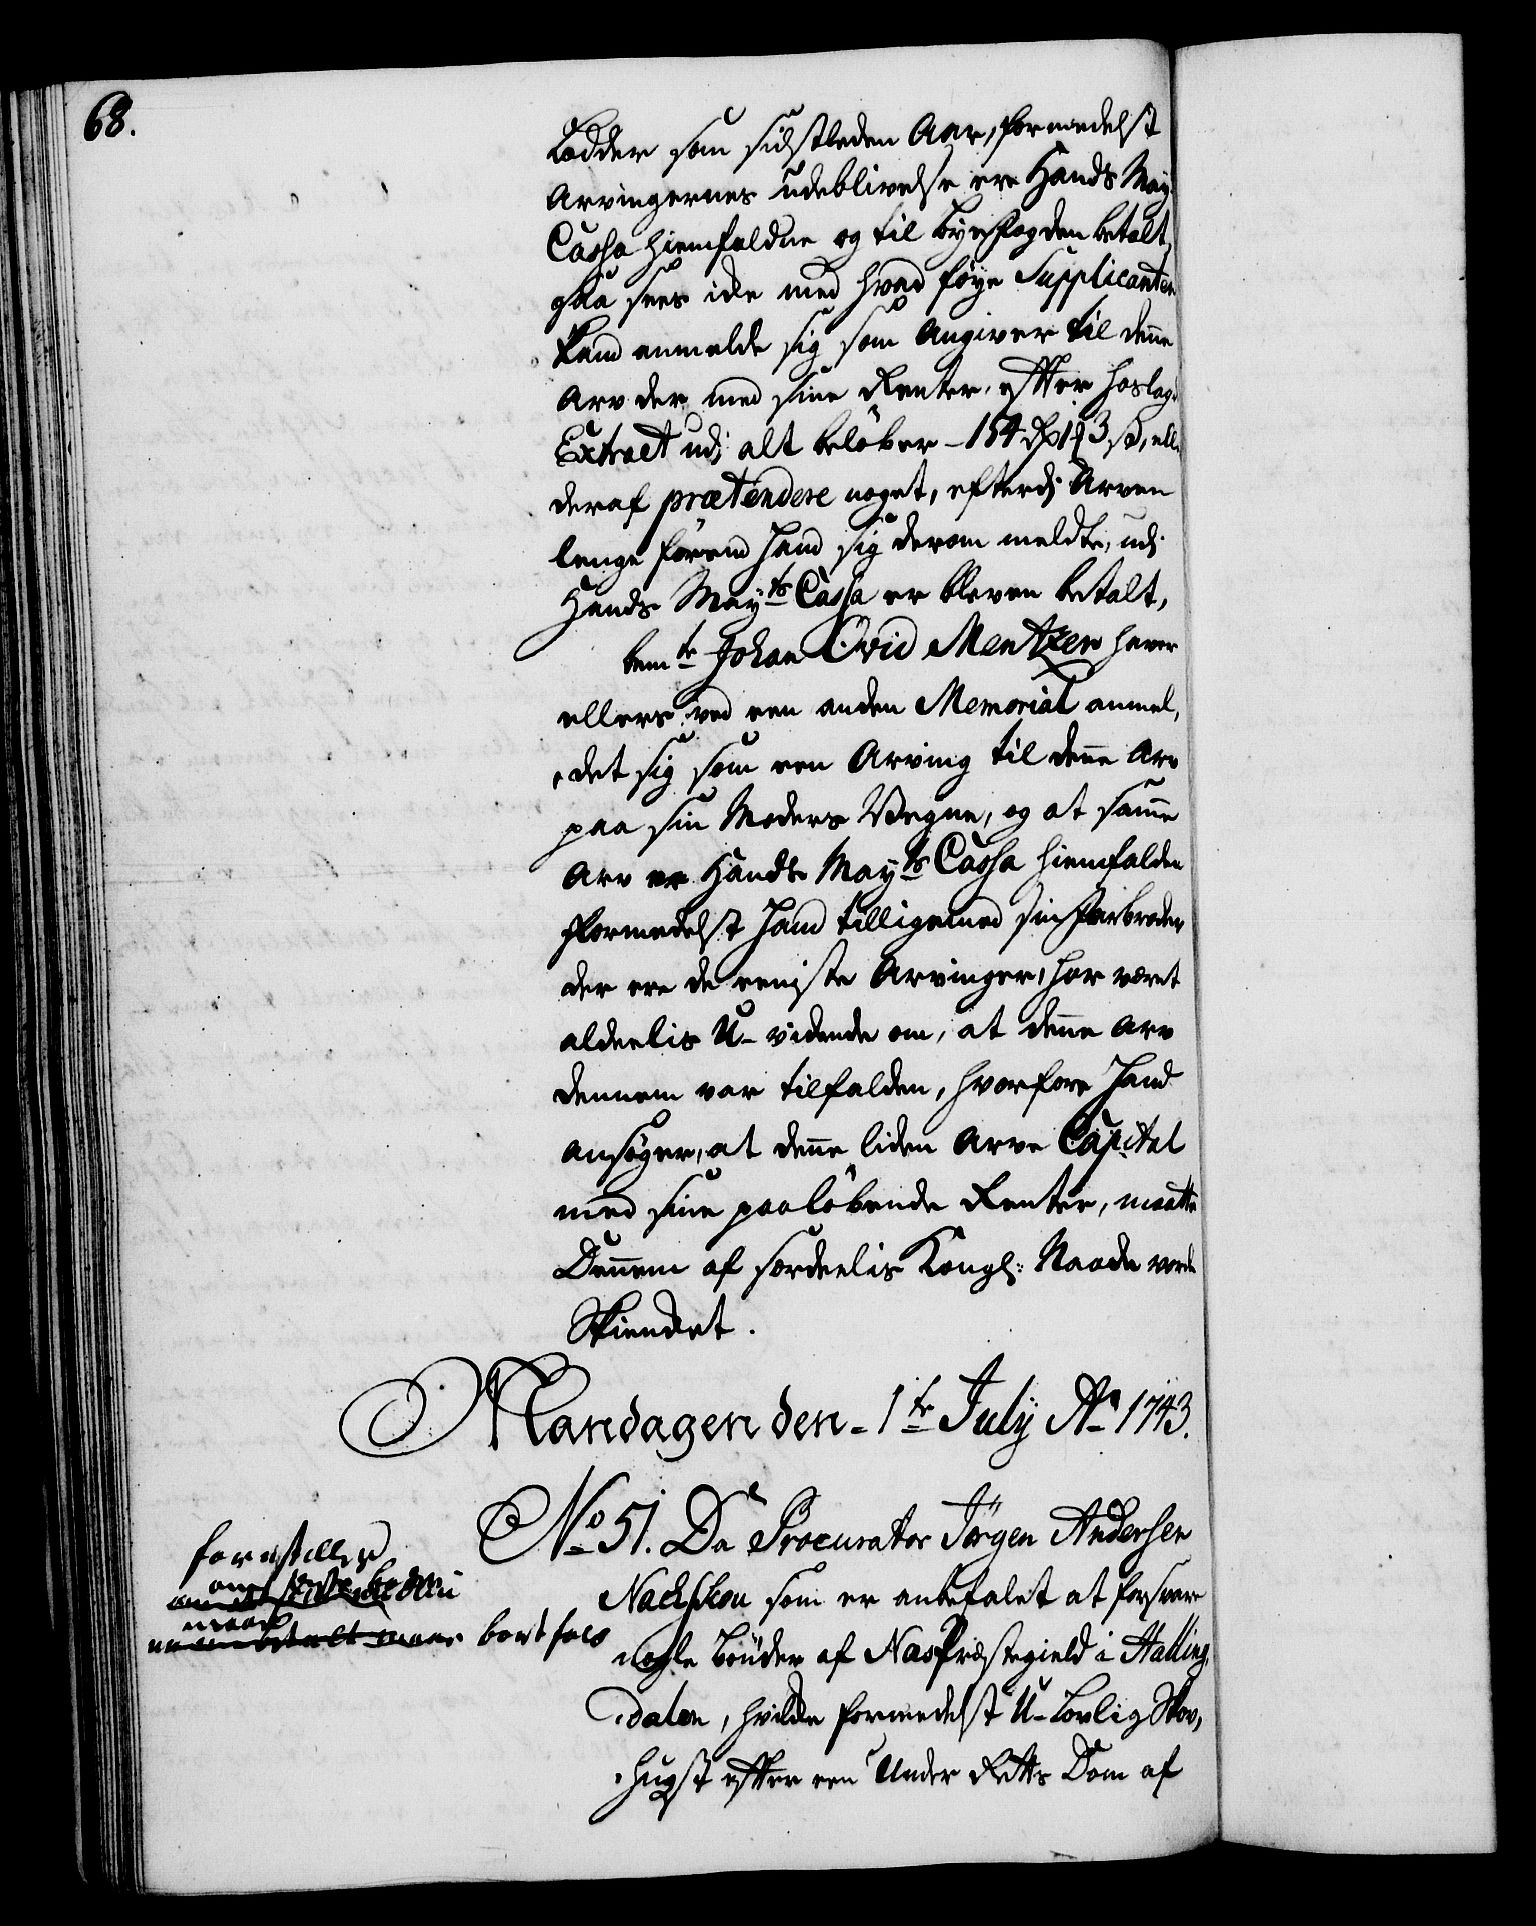 68.
Lodder som sidstleden Aar, formedelst
Arvingernes udeblivelse ere Hands May
Cassa hiemfaldne og til Byefogden betalt,
saa sees icke med hvad føye Supplicanten
kand anmelde sig som Angiver til denne
Arv der med sine Renter, efter hoslagde
Extract udj alt beløber - 154 Rd 1 # 3 s, eller
deraf prætendere noget, efterdj Arven
lenge førend hand sig derom meldte, udj
Hands Mayts Cassa er bleven betalt,
bemte Johan Ovid Mentzen haver
ellers ved een anden Memorial anmel,
det sig som een Arving til denne Arv
paa sin Moders Vegne, og at samme
Arv er Hands Mayts Cassa hiemfalden
formedelst hand tilligemed sin Farbroder,
der ere de eeniste Arvinger, har været
aldeelis U-vidende om, at denne Arv
dennem var tilfalden, hvorfore hand
ansøger, at denne liden Arve Capital
med sine paaløbende Renter, maatte
Dennem af særdeelis Kongl: Naade vorde
Skiendet.
Mandagen den - 1te July Ao 1743.
No 51. Da Procurator Jørgen Andersen
Nachskou som er anbefalet at forsvare
nogle Bønder af Nas Præstegield i Halling,
dalen, hvilcke formedelst U-Lovlig Skov,
hugst efter een Under Retts Dom af
forestilles
bortfald